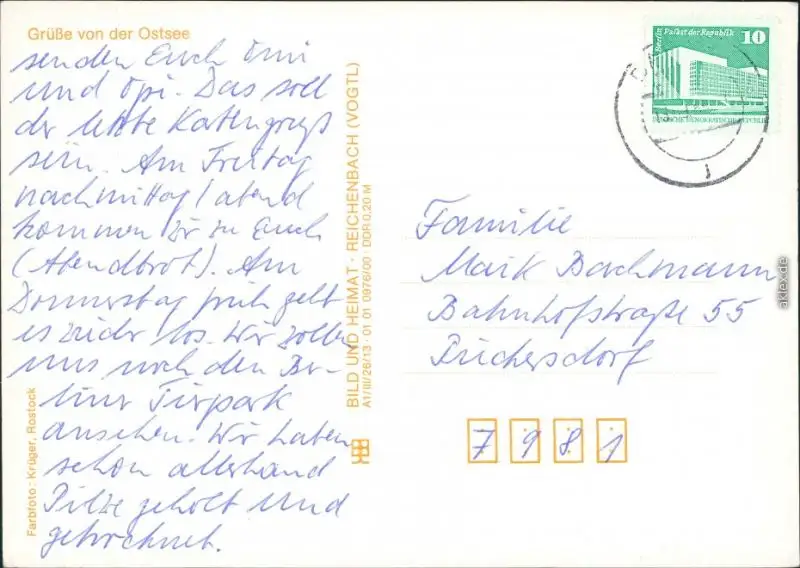 Grüße von der Ostsee
senden Euch Omi
und Opi. Das soll
der letzte Kartengruß
sein. Am Freitag
nachmittag/abend
kommen wir zu Euch
(Abendbrot). Am
Donnerstag früh geht
es wieder los. Wir wollen
uns noch den Ber-
liner Tierpark
ansehen. Wir haben
schon allerhand
Pilze geholt und
getrocknet.
Farbfoto: Krüger, Rostock
BILD UND HEIMAT · REICHENBACH (VOGTL)
A1/III/26/13 · 01 01 0976/00 · DDR 0,20 M
Berlin Palast der Republik
10
DEUTSCHE DEMOKRATISCHE REPUBLIK
Familie
Maik Bachmann
Bahnhofstraße 55
7981
aklex.de